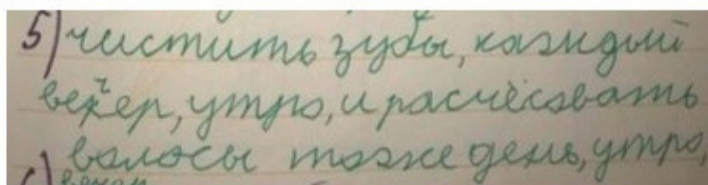 5) чистить зубы, каждый
вечер, утро, и расчёсовать
волосы тоже день, утро,
6) вечер